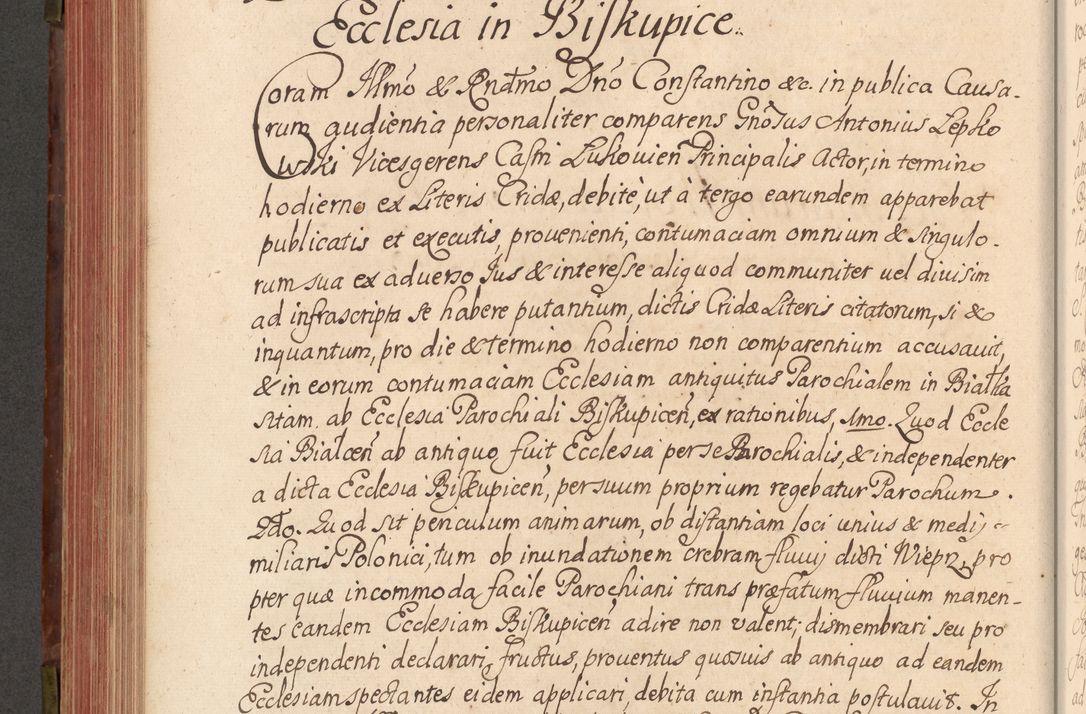 Ecclesia in Biſkupice.
Coram Illmo & Rndmo Dno Conſtantino &c. in publica Causa-
rum audientia personaliter comparens Gnosus Antonius Lepko
wski Vicesgerens Caſtri Lukovien Principalis Actor, in termino
hodierno ex Literis Cridæ, debite, ut à tergo earundem apparebat
publicatis et executis, prouenienti, contumaciam omnium & singulo-
rum sua ex aduerso Jus & intereſse aliquod communiter uel diuisim
ad infrascripta se habere putantium, dictis Cridæ Literis citatorum, si &
inquantum, pro die & termino hodierno non comparentium accusauit,
& in eorum contumaciam Ecclesiam antiquitus Parochialem in Białka
sitam, ab Ecclesia Parochiali Biſkupicen, ex rationibus, 1mo. Quod Eccle
sia Białcen ab antiquo fuit Ecclesia per se Parochialis, & independenter
a dicta Ecclesia Biſkupicen, per suum proprium regebatur Parochum.
2do. Quod sit periculum animarum, ob diſtantiam loci unius & medij
miliaris Polonici, tum ob inundationem crebram fluuij dicti Wieprz, pro
pter quæ incommoda facile Parochiani trans præfatum fluuium manen-
tes eandem Ecclesiam Biſkupicen adire non valent; dismembrari seu pro
independenti declarari, fructus, prouentus quosuis ab antiquo ad eandem
Ecclesiam spectantes eidem applicari, debita cum inſtantia poſtulauit. In